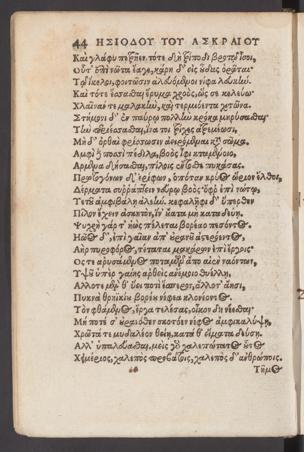 44 ΗΣΙΟΔΟΥ ΤΟΥ ΑΣΚΡΑΙΟΥ
Καὶ γλάφυ πετρῆεν. τότε δὴ τρίποδι βροτῷ ἶσοι,
Οὗτ' ἐπὶ νῶτα ἔαγε, κάρη δ' εἰς οὖδας ὁρᾶται.
Τῷ ἴκελοι, φοιτῶσιν ἀλευόμενοι νίφα λευκὴν.
Καὶ τότε ἕσσασθαι ἔρυμα χροὸς, ὥς σε κελεύω,
Χλαῖνάν τε μαλακὴν, καὶ τερμιόεντα χιτῶνα.
Στήμονι δ' ἐν παύρῳ πολλὴν κρόκα μηρύσασθαι.
Τὴν περιέσσασθαι, ἵνα τοι τρίχες ἀτρεμέωσι,
Μὴ δ' ὀρθαὶ φρίσσωσιν ἀειρόμεναι κατὰ σῶμα.
Ἀμφὶ δὲ ποσσὶ πέδιλα, βοὸς ἶφι κταμένοιο,
Ἄρμενα δήσασθαι, πίλοις ἔντοσθε πυκάσσας.
Πρωτογόνων δ' ἐρίφων, ὁπόταν κρύος ὥριον ἔλθῃ,
Δέρματα συῤῥάπτειν νεύρῳ βοὸς· ὄφρ' ἐπὶ νώτῳ,
Ὑετοῦ ἀμφιβάλῃ ἀλεὴν. κεφαλῆφι δ' ὕπερθεν
Πῖλον ἔχειν ἀσκητὸν, ἵν' οὔατα μὴ καταδεύῃ.
Ψυχρὴ γάρ τ' ἠὼς πέλεται βορέαο πεσόντος.
Ἠῷος δ', ἐπὶ γαῖαν ἀπ' οὐρανοῦ ἀστερόεντος
Ἀὴρ πυροφόρος, τέταται μακάρων ἐπὶ ἔργοις.
Ὅς τε ἀρυσάμενος ποταμῶν ἀπο αἰεὶ ναόντων,
Ὑψοῦ ὑπὲρ γαίης ἀρθεὶς ἀνέμοιο θυέλλῃ,
Ἄλλοτε μέν θ' ὕει ποτὶ ἕσπερον, ἄλλοτ' ἄησι,
Πυκνὰ θρηϊκίου βορέου νέφεα κλονέοντος.
Τὸν φθάμενος, ἔργα τελέσας, οἶκον δὲ νέεσθαι.
Μή ποτέ σ' οὐρανόθεν σκοτόεν νέφος ἀμφικαλύψῃ,
Χρῶτά τε μυδαλέον θείῃ, κατά θ' εἵματα δεύσῃ.
Ἀλλ' ὑπαλεύασθαι. μεὶς γὸ χαλεπώτατος οὗτος
Χειμέριος, χαλεπὸς προβάτοις, χαλεπὸς δ' ἀνθρώποις.
Τῆμος